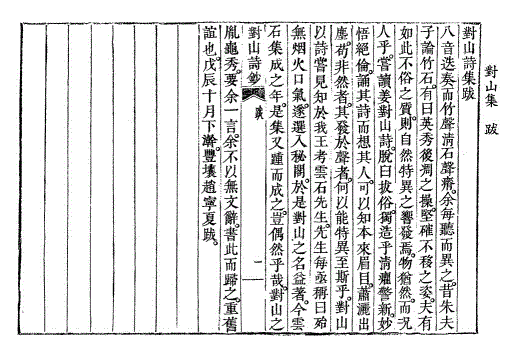 對山集 跋
對山詩集跋
八音迭奏而竹聲淸石聲磬。余每聽而異之。昔朱夫
子論竹石。有曰英秀後凋之操。堅確不移之姿。夫有
如此不俗之質。則自然特異之響發焉。物猶然。而况
人乎。嘗讀姜對山詩。脫臼拔俗。獨造乎淸癯警新。妙
悟絕倫。誦其詩而想其人。可以知本來眉目。蕭灑出
塵。苟非然者。其發於聲者。何以能特異至斯乎。對山
以詩嘗見知於我王考雲石先生。先生每亟稱曰殆
無烟火口氣。遂選入秘閣。於是對山之名益著。今雲
石集成之年。是集又踵而成之。豈偶然乎哉。對山之
對山詩鈔 跋 一
胤龜秀。要余一言。余不以無文辭。書此而歸之。重舊
誼也。戊辰十月下澣。豐壤趙寧夏跋。